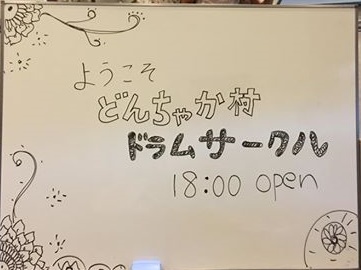 ようこそ
どんちゃか村
ドラムサークル
18:00 open